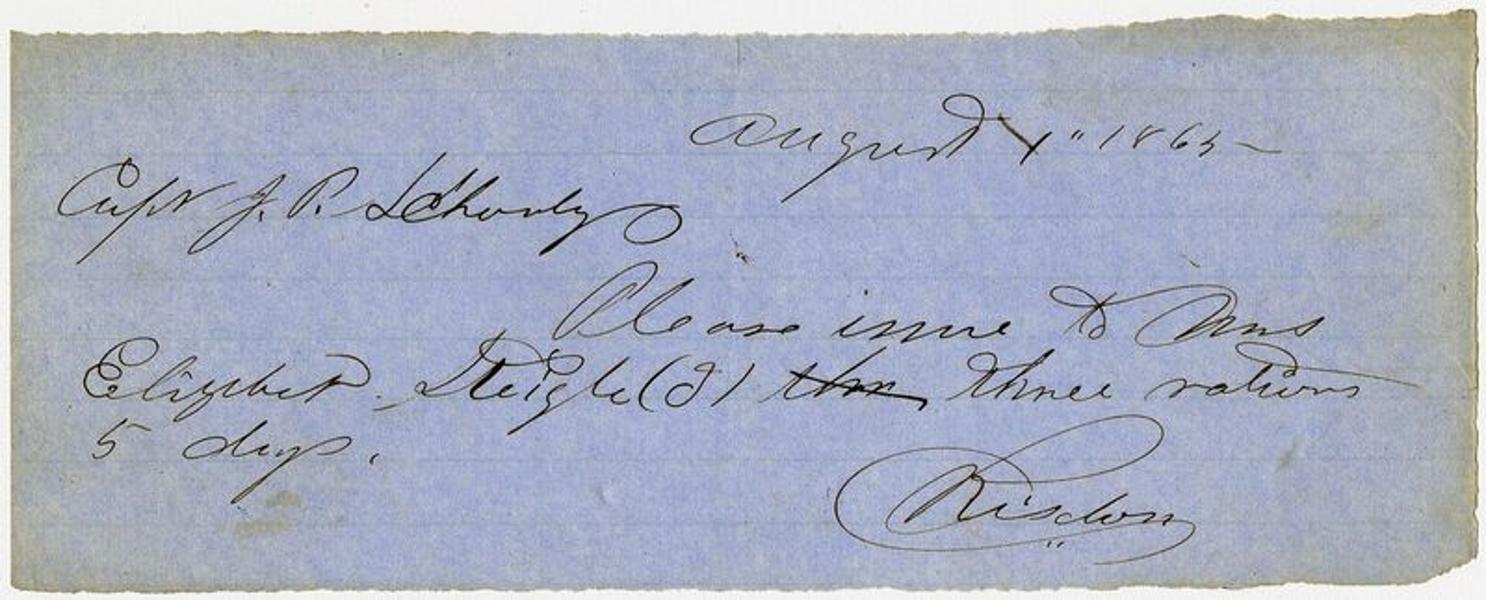 August 1" 1865 -
Capt J. P. Schooly
Please issue to Mrs
Elizabet Steigle (3) three rations
5 days.
Risdon